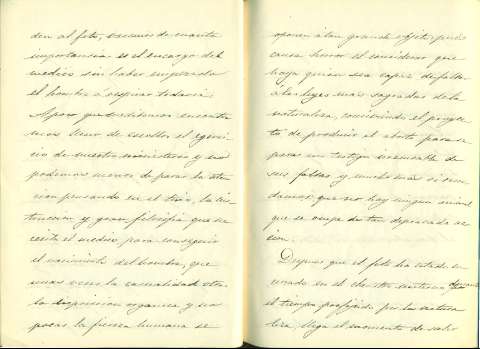 den al feto, veamos de cuanta
importancia es el encargo del
medico sin haber empezado
el hombre á respirar todavia
Apesar que debemos encontra
mos lleno de escollos el egerci
cio de nuestro ministerio y no
podemos menos de parar la aten
cion pensando en el tino, la ins
truccion y gran filosofia que ne
cesita el medico para conseguir
el nacimiento del hombre, que
unas veces la casualidad otra
la disposicion organica y no
pocas la fuerza humana se
oponen á tan grande objeto, pues
causa horror el considerar que
haya quien sea capaz de faltar
á las leyes mas sagradas de la
naturaleza, concibiendo el proyec
to de producir el aborto para
un testigo irrecusable de
sus faltas y mucho mas si recor
damos que no hay ningun animal
que se valga de tan depravada ac
cion.
Despues que el feto ha estado en
cerrado en el claustro materno durante
el tiempo prefijado por la natura
leza, llega el momento de salir